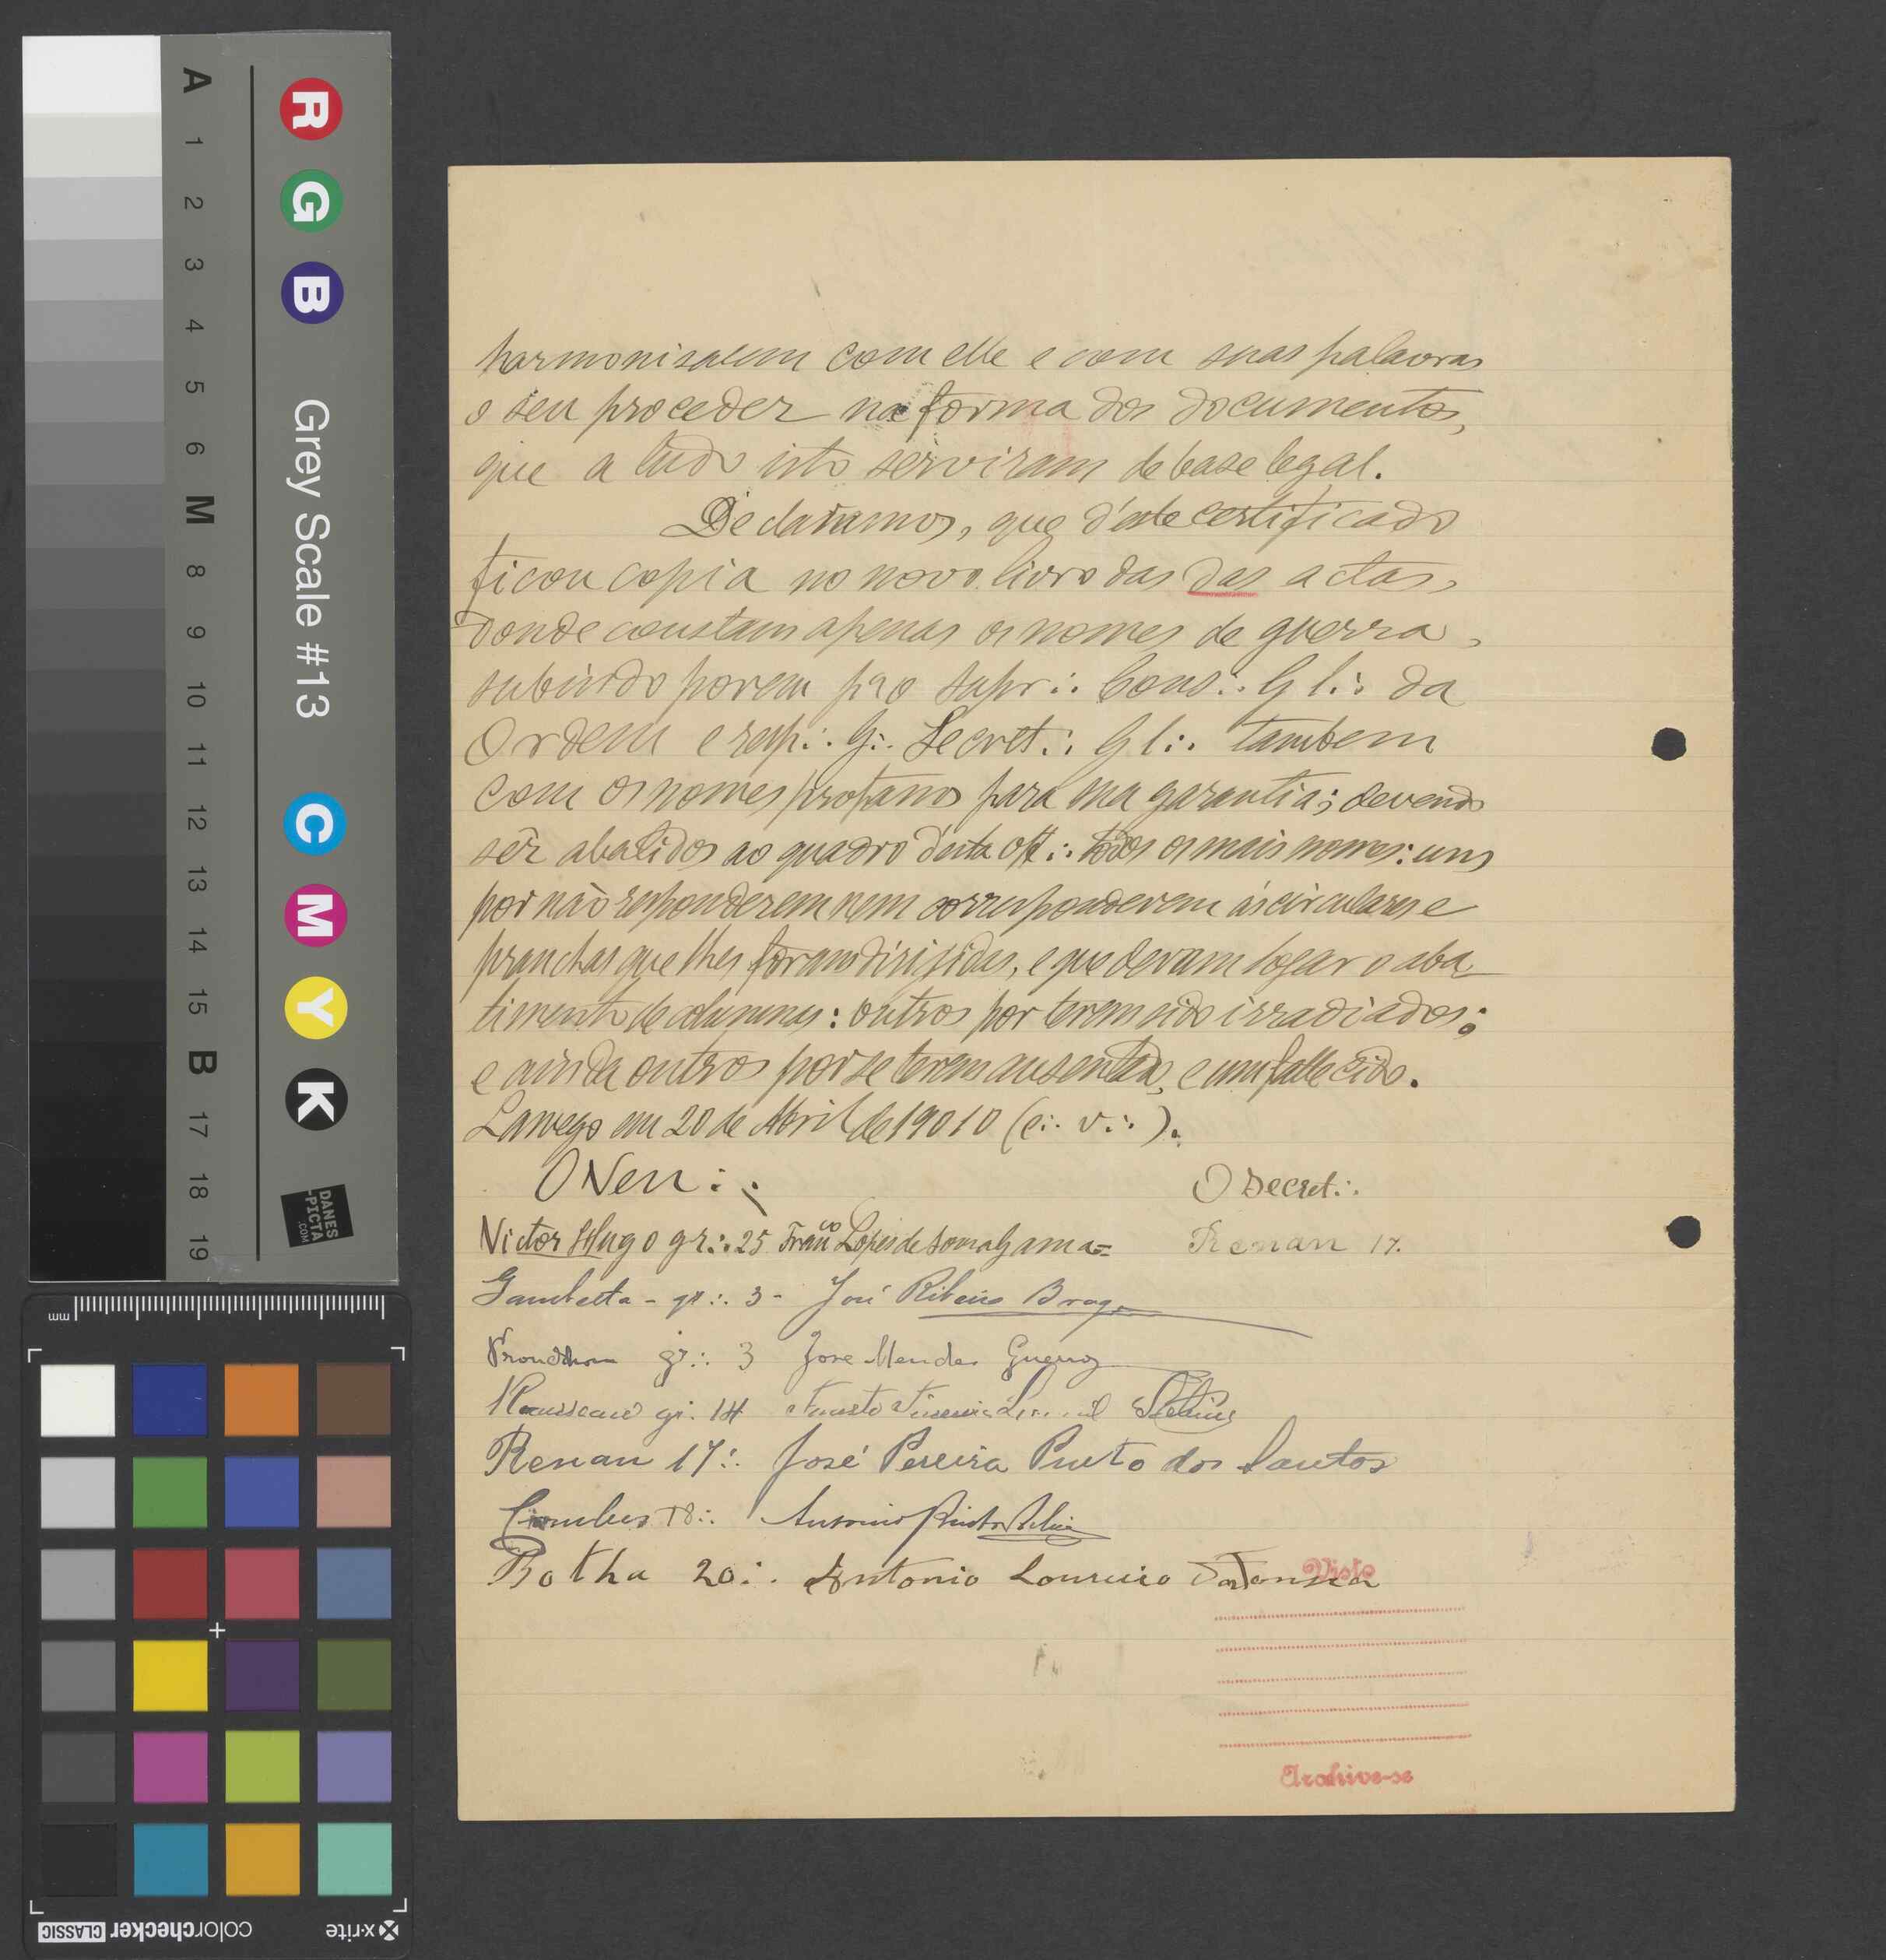 harmonisarem com elle e com suas palavras
o seu proceder na forma dos documentos,
que a tudo isto serviram de base legal.
Declaramos, que d'este certificado
ficou copia no novo livro das das actas,
donde constam apenas os nomes de guerra,
subindo porem p.ª o Supr∴ Cons∴ G l∴ da
Ordem e resp∴ G∴ Secret∴ G l∴ tambem
com os nomes profanos para sua garantia; devendo
ser abatidos ao quadro d'esta off∴ todos os mais nomes: uns
por não responderem nem corresponderem ás circulares e
pranchas que lhes foram dirijidas, e que devam logar o aba
timento de columnas: outros por terem sido irradiados;
e ainda outros por se terem ausentado, e um fallecido.
Lamego em 20 de Abril de 19010 (e∴ v∴).
O Ven∴
O Secret∴
Victor Hugo gr∴ 25 Fran.co Lopes de Sousa Gama=
Renan 17.
Gambetta - gr∴ 3 - José Ribeiro Braga
Proudhon gr∴ 3 Jose Mendes Guerra
Rousseau gr. 14 Fausto
Renan 17∴ José Pereira Pinto dos Santos
Combes 18∴ Antonio Pinto
Botha 20∴ Antonio Loureiro
Visto
Archive-se
A 1 2 3 4 5 6 M 8 9 10 11 12 13 14 15 B 17 18 19
R G B Grey Scale #13 C M Y K
DANES
-PICTA
.COM
mm
x-rite
colorchecker CLASSIC